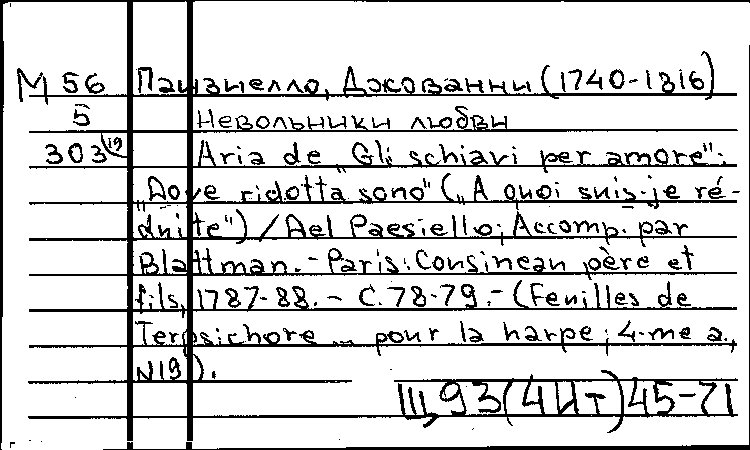 М 56 Паизиелло, Джованни (1740-1816)
5 Невольники любви
303(19) Aria de „Gli schiavi per amore":
„Dove ridotta sono" („A quoi suis-je ré-
duite") / Del Paesiello; Accomp. par
Blattman. - Paris: Cousineau père et
fils, 1787-88. - С. 78-79. - (Feuilles de
Terpsichore ... pour la harpe; 4-me a.,
N19).
Щ93(4Ит)45-71